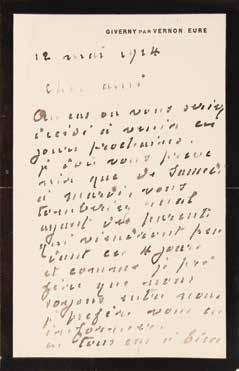 GIVERNY PAR VERNON. EURE
12 mai 1914
cher ami
Au cas où vous seriez
décidé à venir ces
jours prochains,
je dois vous préve
nir que de samedi
à mardi vous
tomberiez mal
ayant des parents
qui viendront pen
dant ces 4 jours
et comme je pré
fère que nous
soyons entre nous
je préfère vous en
informer.
en tous cas à bien